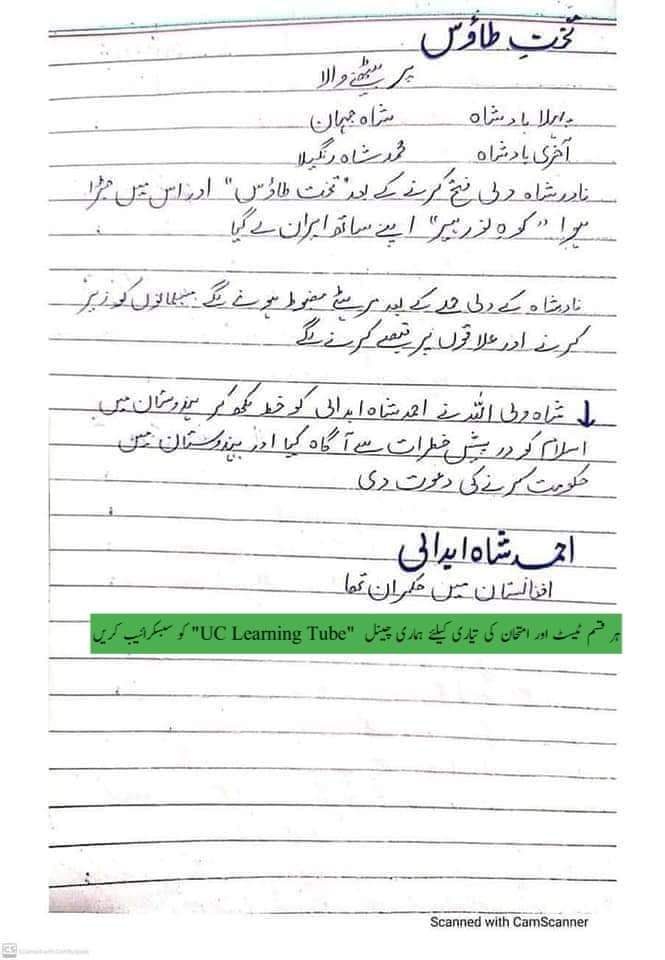 تختِ طاؤس
پر بیٹھنے والا
پہلا بادشاہ شاہ جہان
آخری بادشاہ محمد شاہ رنگیلا
نادر شاہ دلی فتح کرنے کے بعد "تخت طاؤس" اور اس میں جڑا
ہوا "کوہ نور ہیرا" اپنے ساتھ ایران لے گیا
نادر شاہ کے دلی حملے کے بعد مرہٹے مضبوط ہونے لگے مسلمانوں کو زیر
کرنے اور علاقوں پر قبضے کرنے لگے
↓ شاہ ولی اللہ نے احمد شاہ ابدالی کو خط لکھ کر ہندوستان میں
اسلام کو درپیش خطرات سے آگاہ کیا اور ہندوستان میں
حکومت کرنے کی دعوت دی
احمد شاہ ابدالی
افغانستان میں حکمران تھا
ہر قسم ٹیسٹ اور امتحان کی تیاری کیلئے ہماری چینل "UC Learning Tube" کو سبسکرائیب کریں
Scanned with CamScanner
CS Scanned with CamScanner